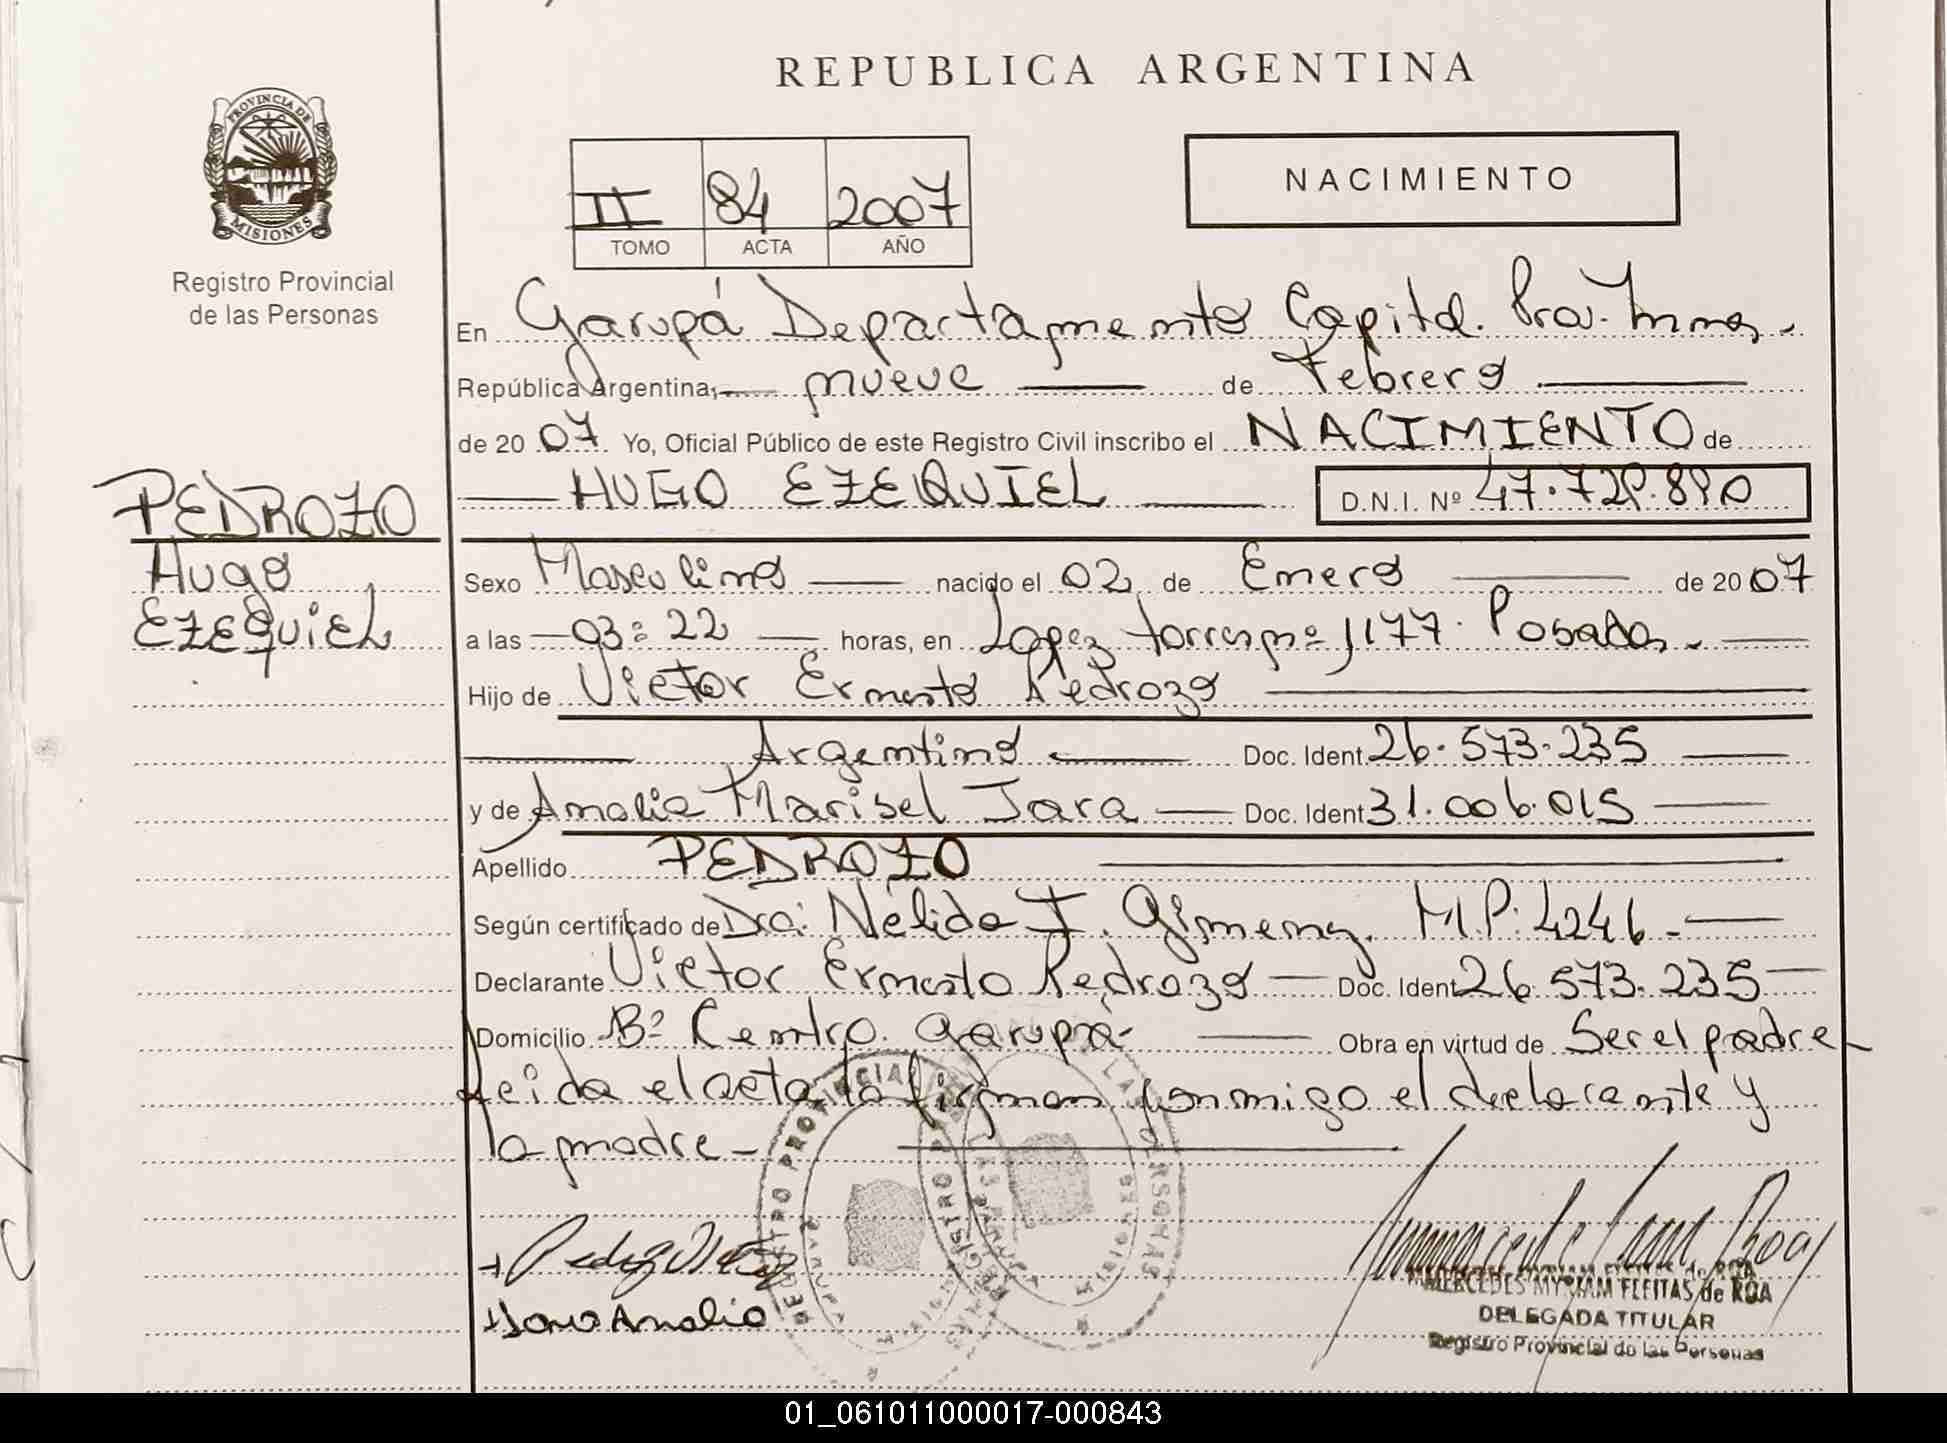 REPUBLICA ARGENTINA
PROVINCIA DE MISIONES
Registro Provincial
de las Personas
II 84 2007
TOMO ACTA AÑO
NACIMIENTO
En Garupá Departamento Capital. Prov. Mnes.
República Argentina, nueve de Febrero
de 2007 Yo, Oficial Público de este Registro Civil inscribo el NACIMIENTO de
HUGO EZEQUIEL D.N.I. Nº 47.729.890
PEDROZO
Hugo
EZEQUIEL
Sexo Masculino nacido el 02 de Enero de 2007
a las 03:22 horas, en Lopez torres nº 1177. Posadas.
Hijo de Victor Ernesto Pedrozo
Argentino Doc. Ident. 26.573.235
y de Amalia Marisel Jara Doc. Ident. 31.006.015
Apellido PEDROZO
Según certificado de Dra. Nélida I. Gimenez. M.P. 4246.
Declarante Victor Ernesto Pedrozo Doc. Ident. 26.573.235
Domicilio Bº Centro. Garupá Obra en virtud de Ser el padre
Leida el acta la firman conmigo el declarante y
la madre
REGISTRO PROVINCIAL DE LAS PERSONAS
GARUPA
MISIONES
Jara Amalia
MERCEDES MYRIAM FLEITAS de ROA
DELEGADA TITULAR
Registro Provincial de las Personas
01_061011000017-000843